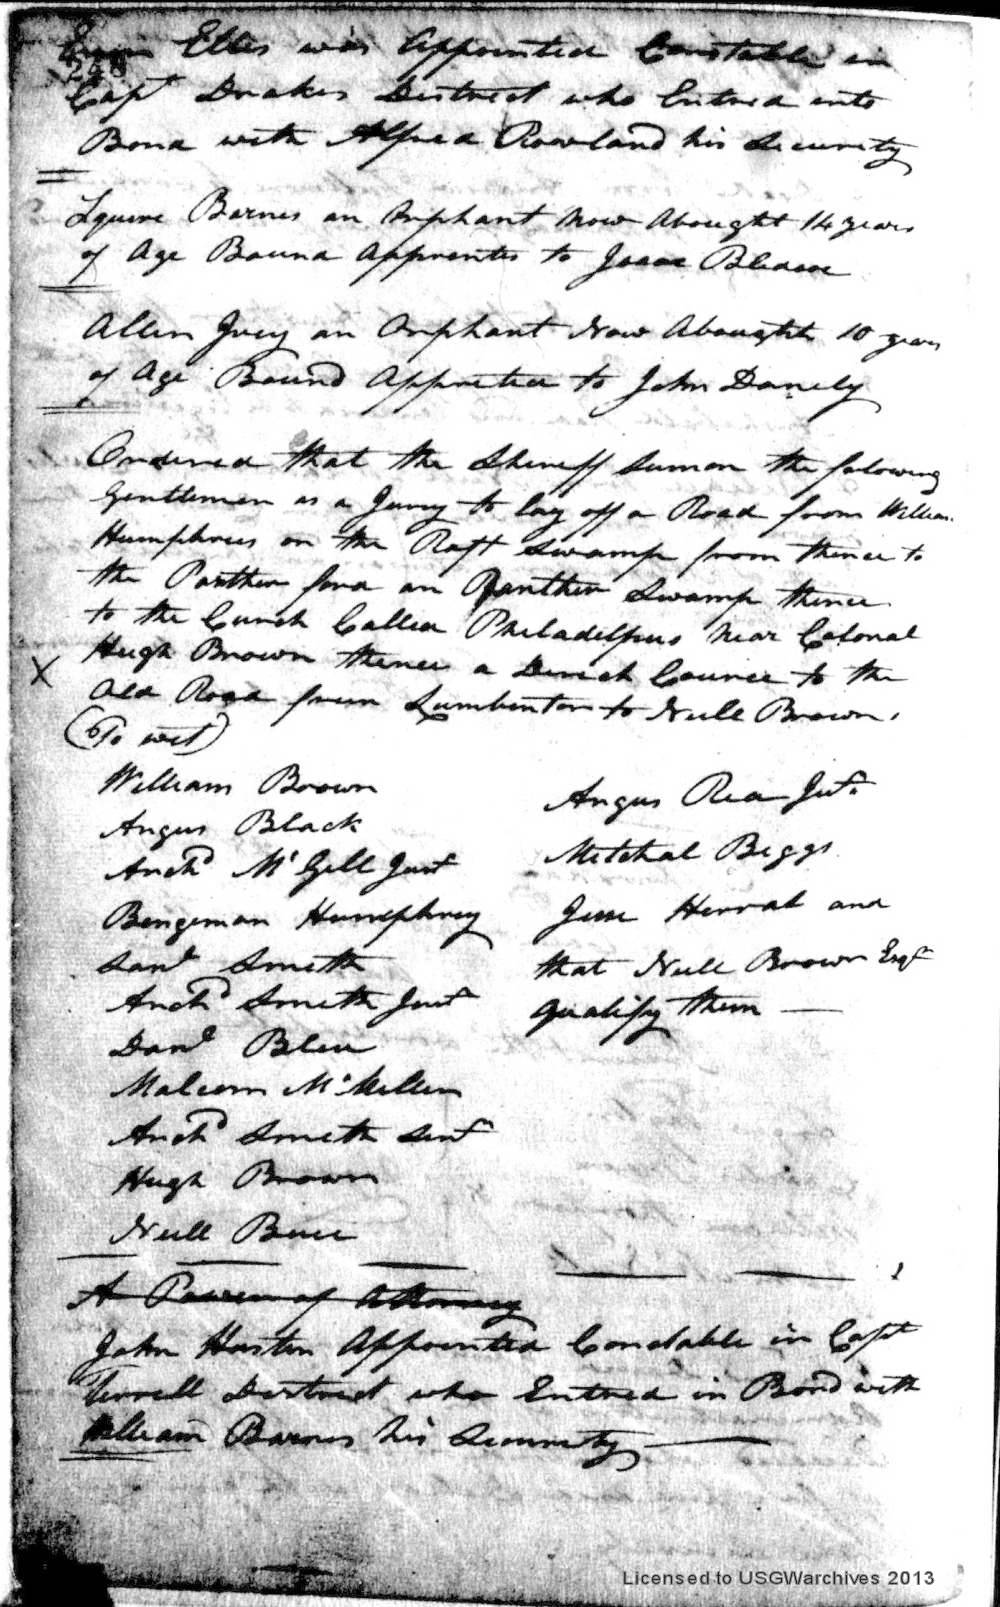 Ellis was Appointed Constable in
248
Capt Drakes District who Entred into
Bond with Alfred Rowland his Security
Squire Barnes an Orphant Now Abought 14 years
of Age Bound Apprentes to Jesse Bledsoe
Allen Ivey an Orphant Now Abought 10 years
of Age Bound Apprented to John Danely
Ordered that the Sheriff Sumon the folowing
Gentlemen as a Jurey to lay off a Road from William
Humphries on the Raft Swamp from thence to
the Panther ford on Panther Swamp thence
to the Curch Called Philadelphus Near Colonal
X
Hugh Brown thence a Direck Cource to the
Old Road from Lumberton to Neill Brown,
(To wit)
William Brown
Angus Black
Archd McGill Junr
Bengeman Humphrey
Danl Smith
Archd Smith Junr
Danl Blue
Malcom McMillen
Archd Smith Senr
Hugh Brown
Neill Buie
Angus Rea Junr
Mitchal Biggs
Jesse Herral and
that Neill Brown Esqr
qualify them
A Power of Attorney
John Appointed Constable in Capt
Terrell District who Entred in Bond with
William Barnes his Security
Licensed to USGWarchives 2013